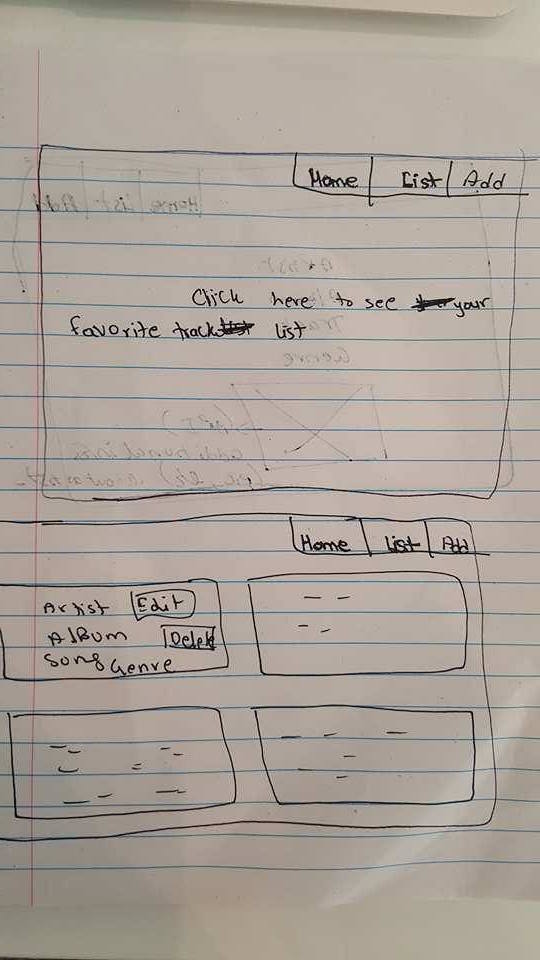 Home List Add
Click here to see your
favorite track list
Home List Add
Artist Edit
Album Delete
Song Genre